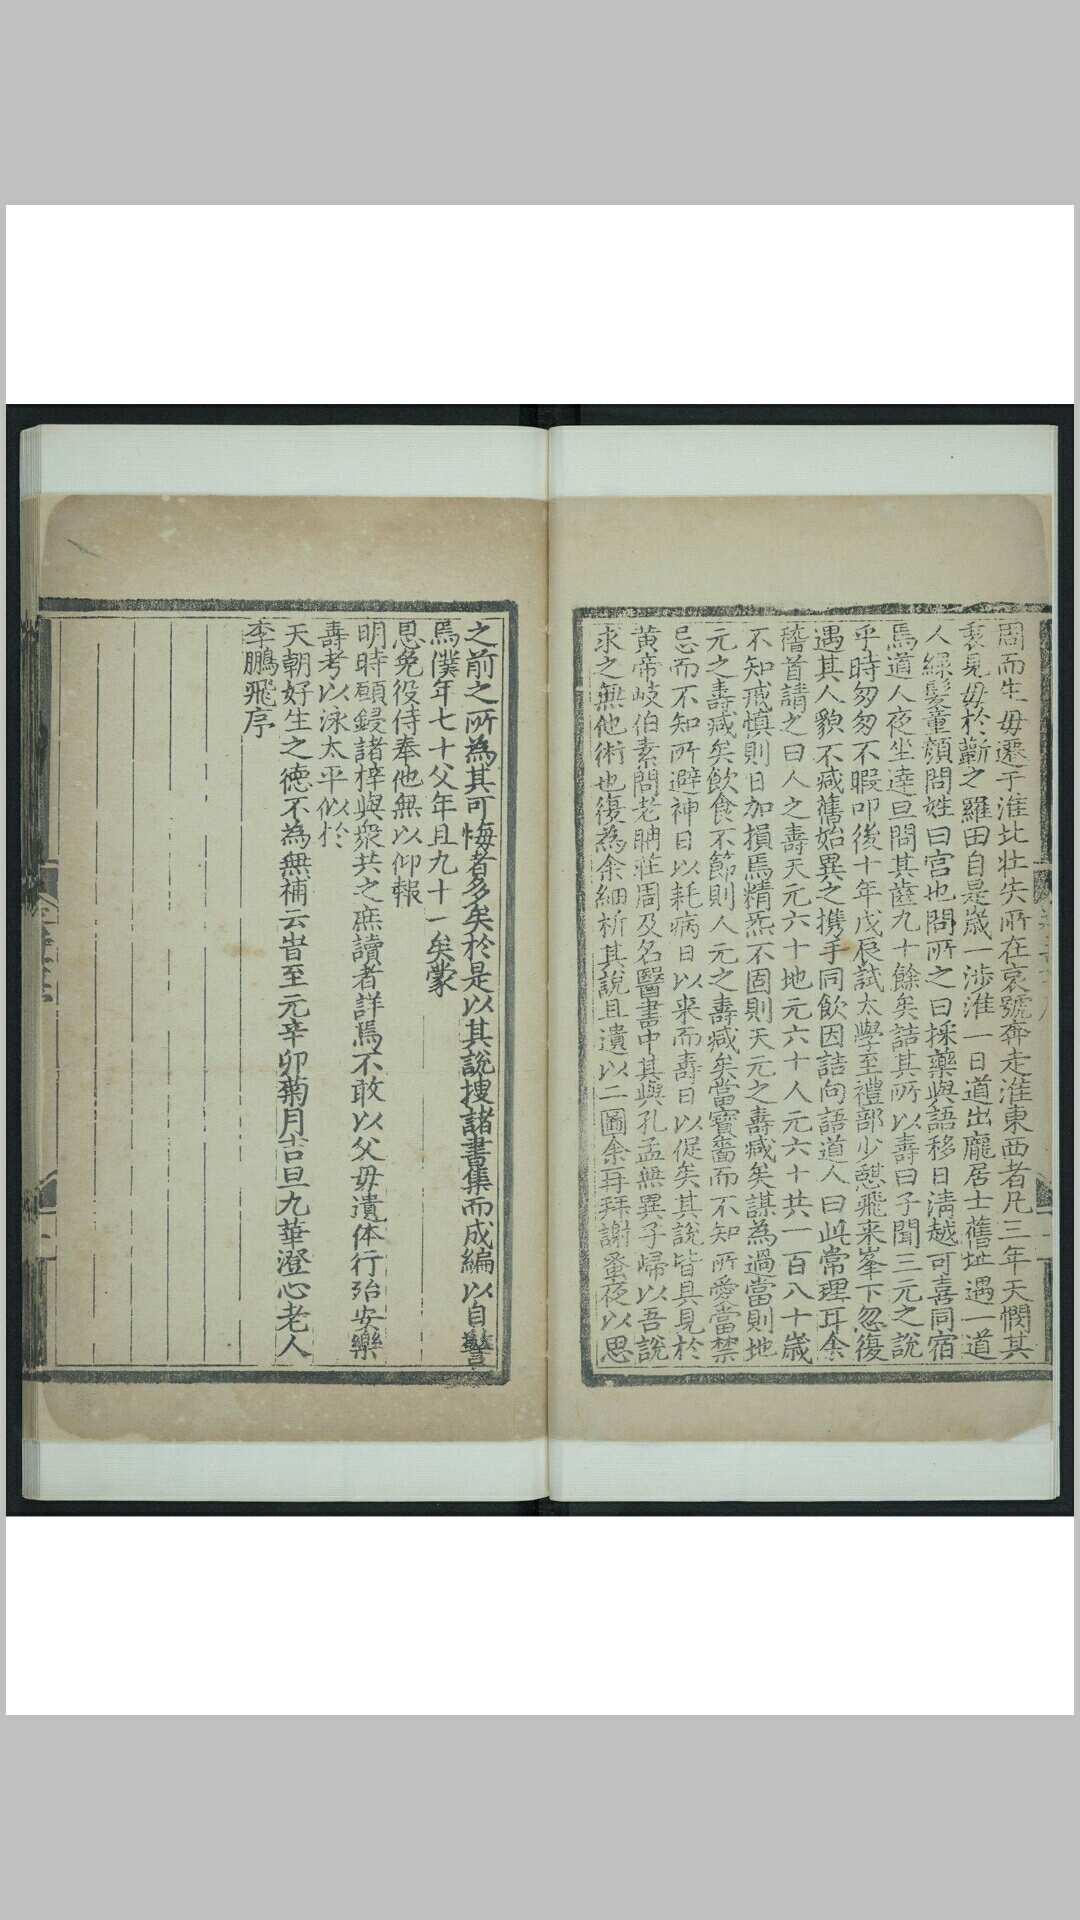 周而生毋遷于淮北壮失所在哀號奔走淮東西者凡三年天憫其
衷見毋於蘄之羅田自是歲一涉淮一日道出龐居士舊址遇一道
人綠髮童顔問姓曰宫也問所之曰採藥與語移日清越可喜同宿
焉道人夜坐達旦問其齒九十餘矣詰其所以壽曰子聞三元之說
乎時匆匆不暇叩後十年戊辰試太學至禮部少憩飛来峯下忽復
遇其人貌不减舊始異之携手同飲因詰向語道人曰此常理耳余
稽首請之曰人之壽天元六十地元六十人元六十共一百八十歲
不知戒慎則日加損焉精炁不固則天元之壽减矣謀為過當則地
元之壽减矣飲食不節則人元之壽减矣當寶嗇而不知所愛當禁
忌而不知所避神日以耗病日以来而壽日以促矣其說皆具見於
黄帝岐伯素問老聃莊周及名醫書中其與孔孟無異子歸以吾說
求之無他術也復為余細析其說且遺以二圖余再拜謝蚤夜以思
之前之所為其可悔者多矣於是以其說搜諸書集而成編以自警
焉僕年七十父年且九十一矣蒙
恩免役侍奉他無以仰報
明時願鋟諸梓與衆共之庶讀者詳焉不敢以父毋遺体行殆安樂
壽考以泳太平似於
天朝好生之德不為無補云旹至元辛卯菊月吉旦九華澄心老人
李鵬飛序